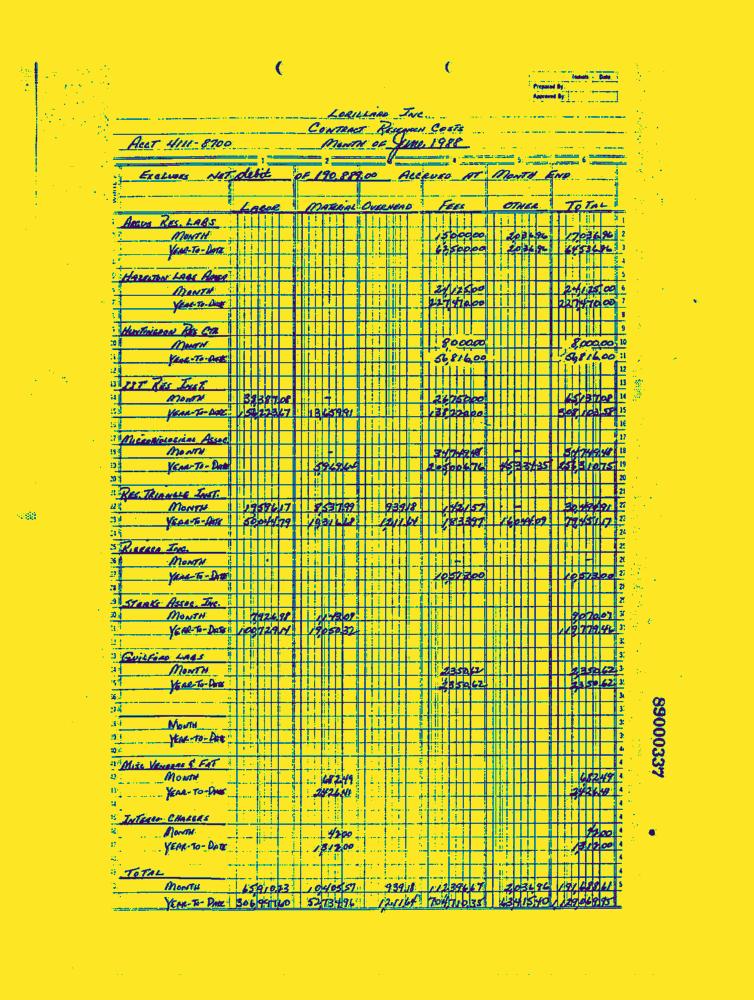 Initials - Date
Prepared By
Approved By
LORILLARD INC.
CONTRACT RESEARCH COSTS
ACCT 4111-8700 MONTH OF June, 1988
1 2 4 5 6
EXCLUDES NET debit OF 190,889.00 ACCRUED AT MONTH END
LABOR MATERIAL OVERHEAD FEES OTHER TOTAL
ARGUS RES. LABS
MONTH 15,000.00 2,036.96 17,036.96
YEAR-TO-DATE 62,500.00 2,036.96 64,536.96
HAZELTON LABS
MONTH 24,125.00 24,125.00
YEAR-TO-DATE 227,470.00 227,470.00
HUNTINGDON RES CTR
MONTH 8,000.00 8,000.00
YEAR-TO-DATE 56,816.00 56,816.00
RES INST.
MONTH 38,387.08 - 26,750.00 65,137.08
YEAR-TO-DATE 13,659.91
MICROBIOLOGICAL ASSOC
MONTH - 34,749.48 - 34,749.48
YEAR-TO-DATE 205,006.76 45,334.35
RES. TRIANGLE INST.
MONTH 19,596.17 8,537.99 939.18 1,421.57 - 30,494.91
YEAR-TO-DATE 50,044.79 1,211.64 16,044.09
INC.
MONTH - -
YEAR-TO-DATE 10,513.00 10,513.00
STARKS ASSOC. INC.
MONTH 7,926.98 1,143.09 9,070.07
YEAR-TO-DATE 100,729.14 19,050.32 119,779.46
GUILFORD LABS
MONTH 2,350.62 2,350.62
YEAR-TO-DATE 2,350.62 2,350.62
MONTH
YEAR-TO-DATE
MISC VENDORS & FRT
MONTH 682.49 682.49
YEAR-TO-DATE 2,426.41 2,426.41
INTERCO CHARGES
MONTH 42.00 42.00
YEAR-TO-DATE 1,312.00 1,312.00
TOTAL
MONTH 65,910.23 10,405.57 939.18 112,396.67 2,036.96 191,688.61
YEAR-TO-DATE 306,997.60 52,734.96 1,211.64 704,710.35 63,415.40 1,129,069.95
89000337